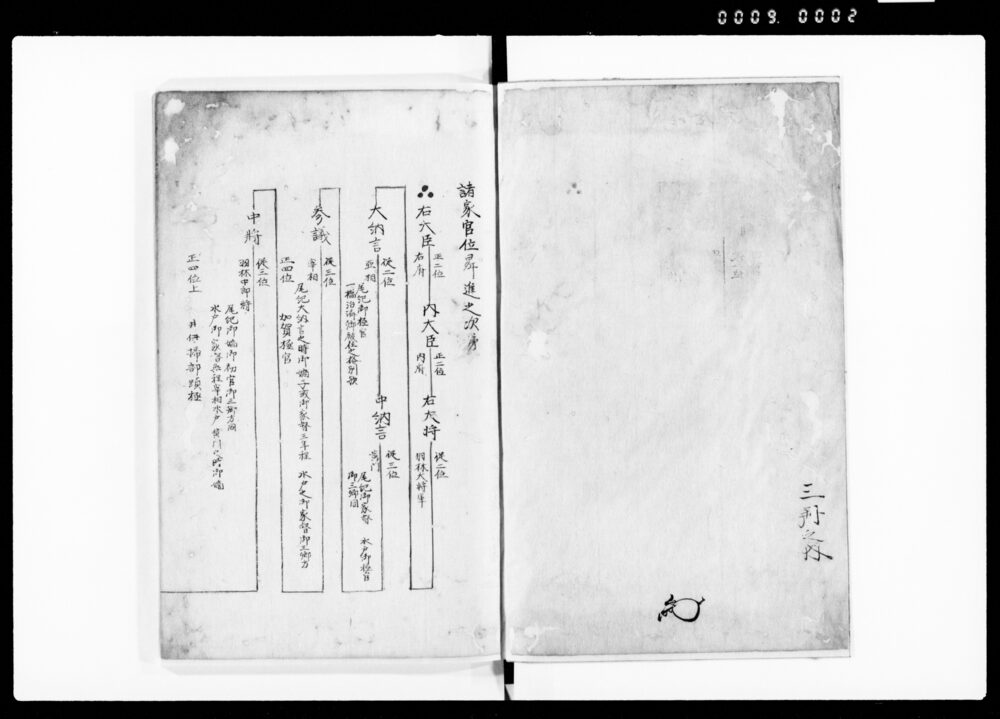 0009. 0002
三
諸家官位昇進之次序
右大臣 正二位 右府
内大臣 正二位 内府
右大将 従二位 羽林大将軍
大納言 従二位 亜相
尾紀御極官
一橋治済御隠居之格別歟
中納言 従三位 黄門
尾紀御家督 水戸御極官
御三卿同
参議 従三位 宰相
尾紀大納言之時御嫡子或御家督三年程 水戸之御家督御三卿方
正四位 加賀極官
中将 従三位 羽林中郎将
尾紀御嫡御初官御三卿方同
水戸御家督無程宰相水戸黄門之時御嫡
正四位上 井伊掃部頭極